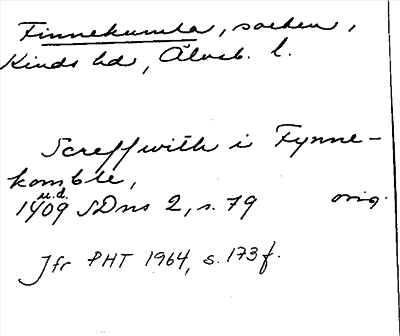 Finnekumla, socken,
Kinds hd, Älvsb. l.
Screffwith i Fynne-
komble,
u.d.
1409 SDns 2, s. 79 orig.
Jfr PHT 1964, s. 173 f.